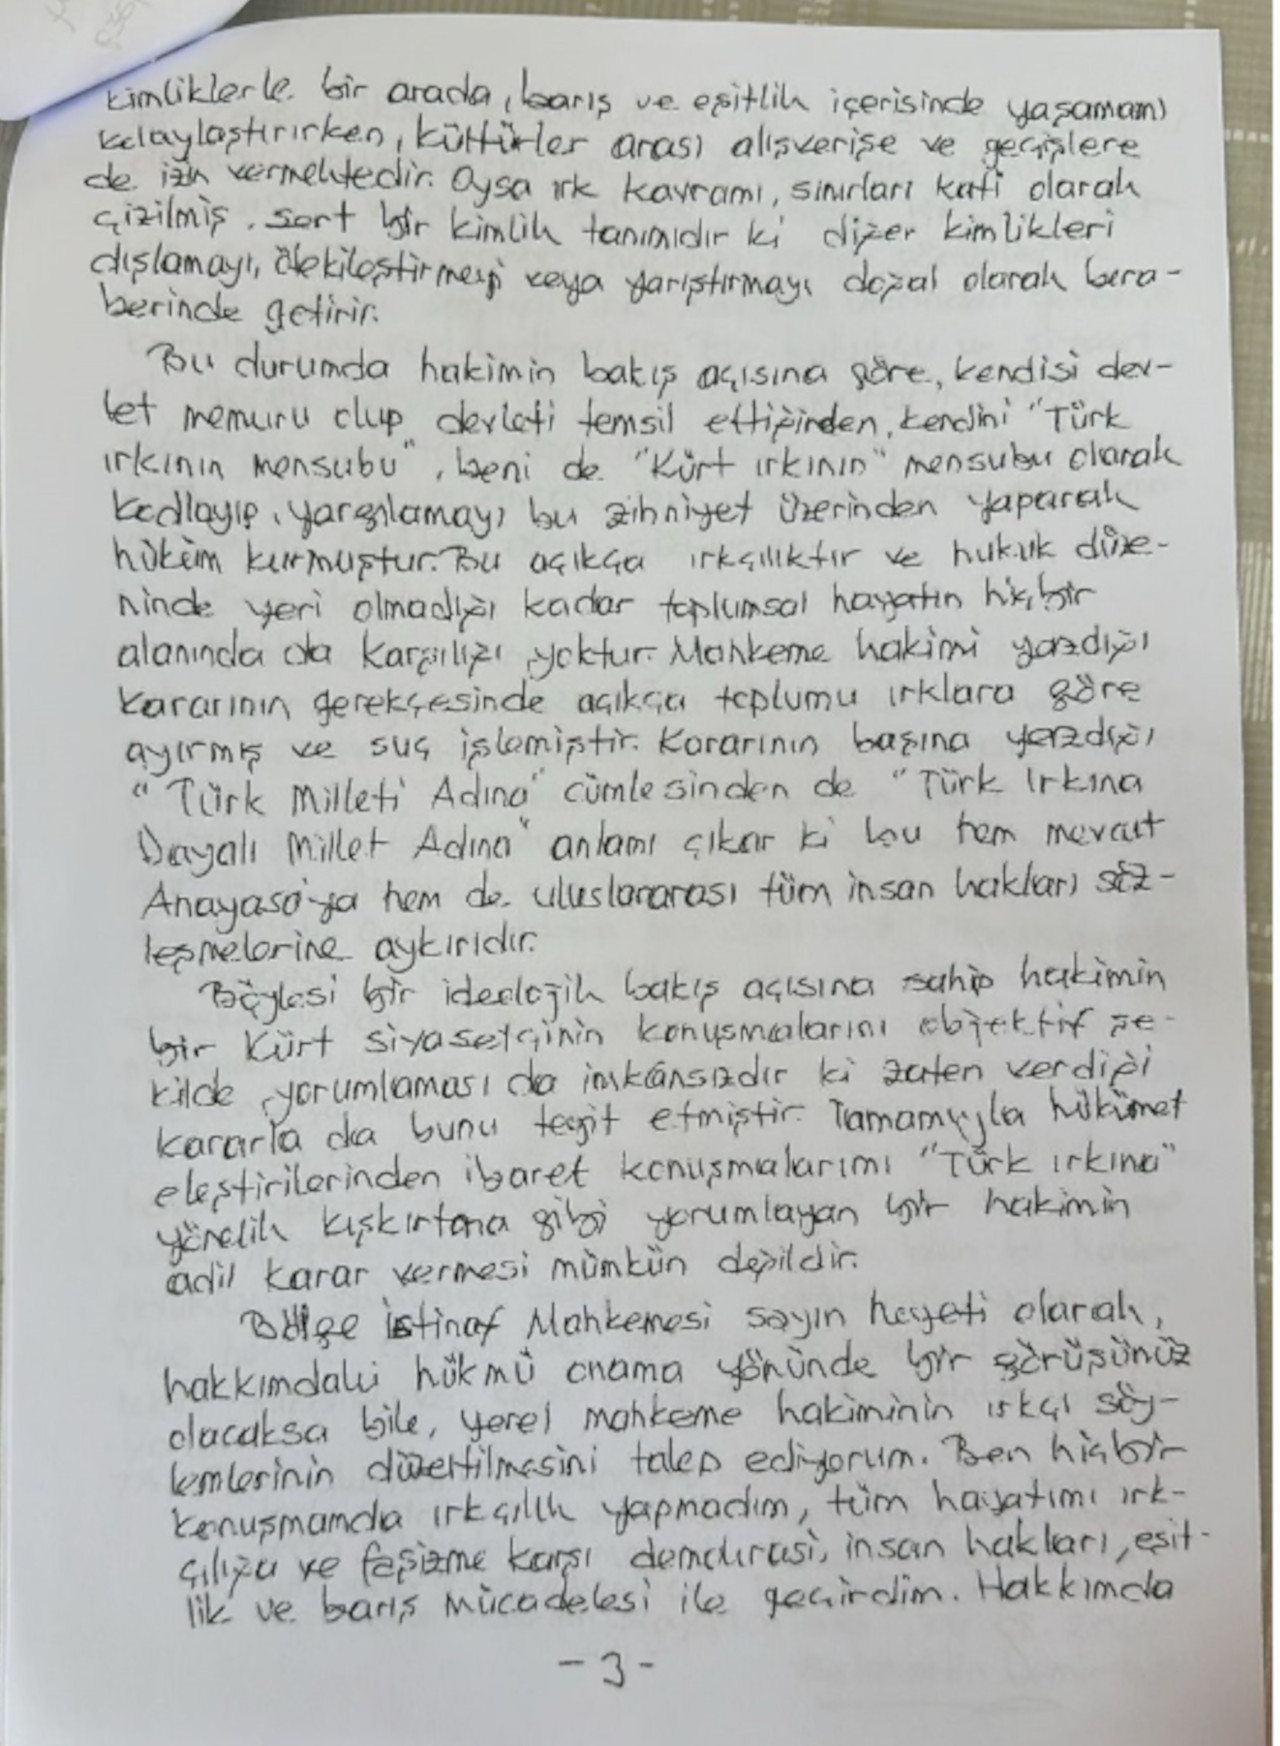 kimliklerle bir arada, barış ve eşitlik içerisinde yaşamamı
kolaylaştırırken, kültürler arası alışverişe ve geçişlere
de izin vermektedir. Oysa ırk kavramı, sınırları kati olarak
çizilmiş, sert bir kimlik tanımıdır ki diğer kimlikleri
dışlamayı, ötekileştirmeyi veya yarıştırmayı doğal olarak bera-
berinde getirir.
Bu durumda hakimin bakış açısına göre, kendisi dev-
let memuru olup devleti temsil ettiğinden, kendini "Türk
ırkının mensubu", beni de "Kürt ırkının" mensubu olarak
kodlayıp, yargılamayı bu zihniyet üzerinden yaparak
hüküm kurmuştur. Bu açıkça ırkçılıktır ve hukuk düze-
ninde yeri olmadığı kadar toplumsal hayatın hiçbir
alanında da karşılığı yoktur. Mahkeme hakimi yazdığı
kararının gerekçesinde açıkça toplumu ırklara göre
ayırmış ve suç işlemiştir. Kararının başına yazdığı
"Türk Milleti Adına" cümlesinden de "Türk Irkına
Dayalı Millet Adına" anlamı çıkar ki bu hem mevcut
Anayasa'ya hem de uluslararası tüm insan hakları söz-
leşmelerine aykırıdır.
Böylesi bir ideolojik bakış açısına sahip hakimin
bir Kürt siyasetçinin konuşmalarını objektif şe-
kilde yorumlaması da imkânsızdır ki zaten verdiği
kararla da bunu teyit etmiştir. Tamamıyla hükümet
eleştirilerinden ibaret konuşmalarımı "Türk ırkına"
yönelik kışkırtma gibi yorumlayan bir hakimin
adil karar vermesi mümkün değildir.
Bölge İstinaf Mahkemesi sayın heyeti olarak,
hakkımdaki hükmü onama yönünde bir görüşünüz
olacaksa bile, yerel mahkeme hakiminin ırkçı söy-
lemlerinin düzeltilmesini talep ediyorum. Ben hiçbir
konuşmamda ırkçılık yapmadım, tüm hayatımı ırk-
çılığa ve faşizme karşı demokrasi, insan hakları, eşit-
lik ve barış mücadelesi ile geçirdim. Hakkımda
- 3 -